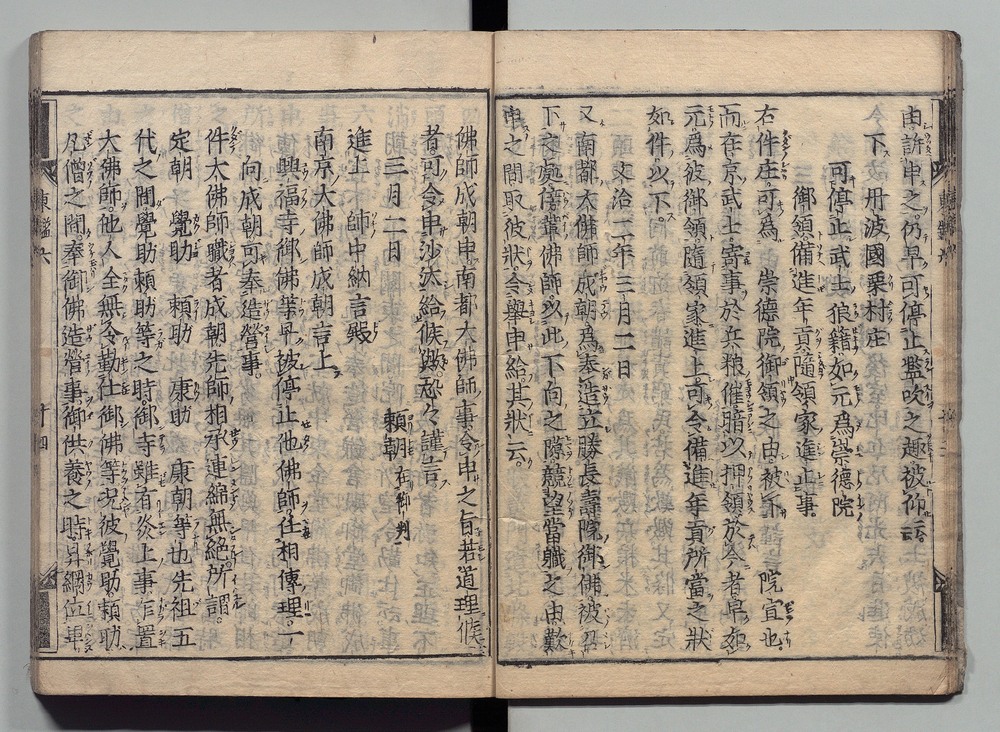 由訴申之仍早可停止濫吹之趣被仰云云
下 丹波國栗村庄
可停止武士狼籍如元為崇德院
御領備進年貢隨領家進止事
右件庄可為 崇德院御領之由被下 院宣也
而在京武士寄事於兵粮催暗以押領於今者早如
元為彼御領隨領家進止可令備進年貢所當之狀
如件以下
文治二年三月二日
又南都大佛師成朝為奉造立勝長壽院御佛被召
下之處傍輩佛師以此下向之隙競望當職之由歎
申之間取彼狀令舉申給其狀云
佛師成朝申南都大佛師事令申之旨若道理候
者可令申沙汰給候歟恐々謹言
三月二日 賴朝在御判
進上 帥中納言殿
南京大佛師成朝言上
興福寺御佛等早被停止他佛師任相傳理一
向成朝可奉造營事
件大佛師職者成朝先師相承連綿無絕所謂
定朝 覺助 賴助 康助 康朝等也先祖五
代之間覺助賴助等之時御寺雖有炎上事作置
大佛師他人全無令勤仕御佛等況彼覺助賴助
凡僧之間奉御佛造營事御供養之時昇綱位畢
東鑑六 十四